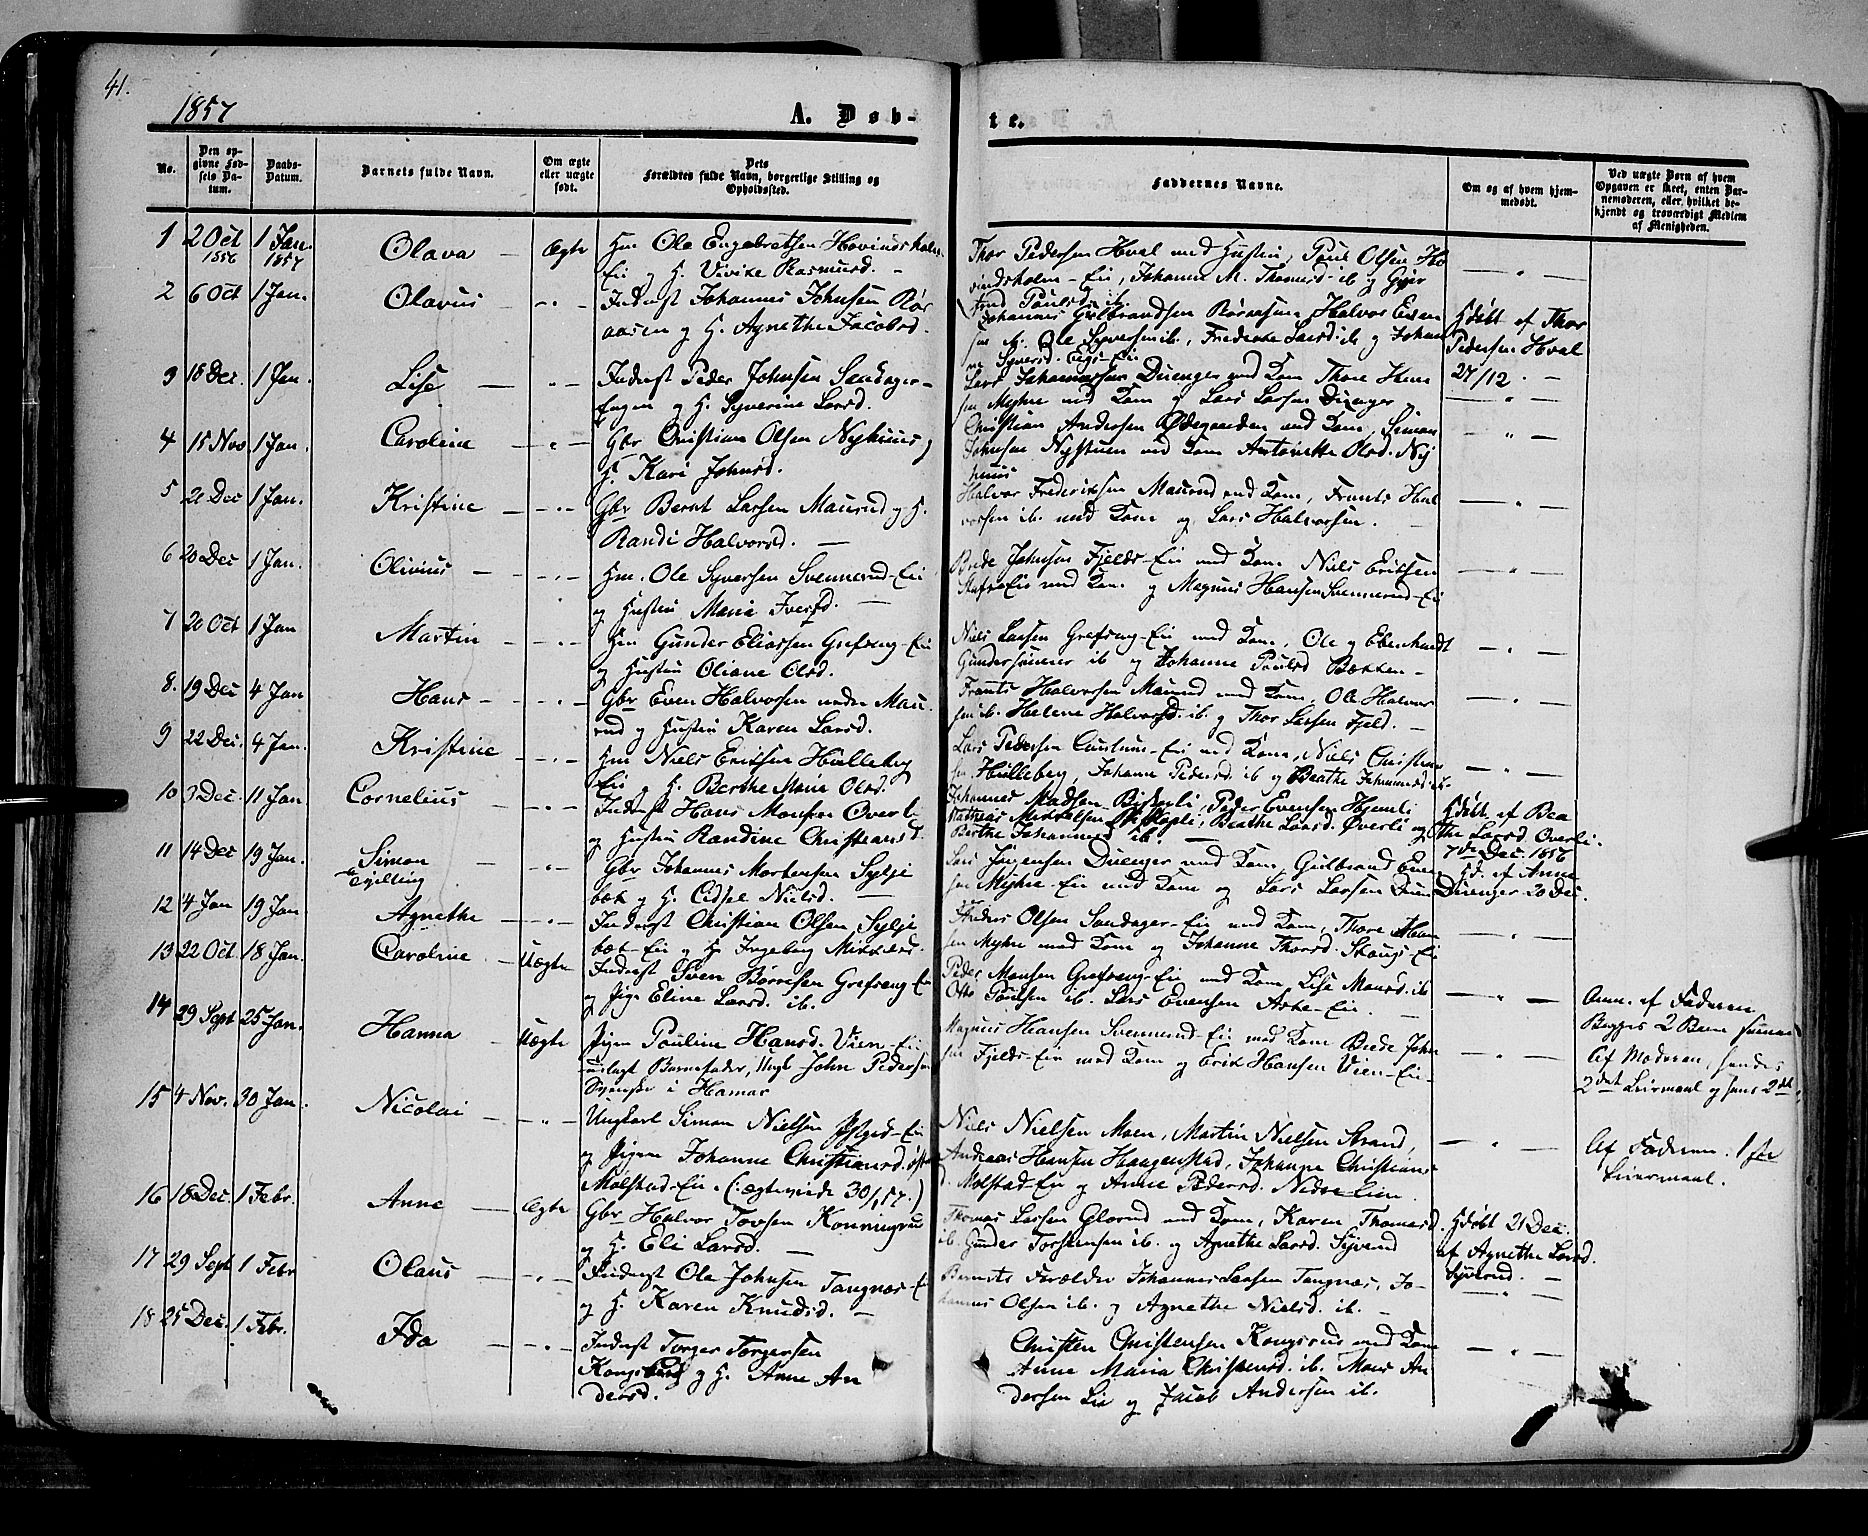 41.
1857
A. Døb-
te.
No.
Den op-
givne Fød-
sels Da-
tum.
Daabs-
Datum.
Barnets fulde Navn.
Om ægte
eller uægte
født.
Dets
Forældres fulde Navn, borgerlige Stilling og
Opholdssted.
Faddernes Navne.
Om og af hvem hjem-
medøbt.
Ved uægte Børn af hvem
Opgaven er skeet, enten Bar-
nemoderen, eller, hvilket be-
kjendt og troværdigt Medlem
af Menigheden.
1 2 Oct 1 Jan. Olava – Ægte Hm Ole Engebretsen Hovindsholm
1856 1857
Eie og H. Vivike Rasmusd. –
Thor Pedersen Hval med Hustru, Poul Olsen Ho
vindsholm-Eie, Johanne M. Thomasd. ib og
Poulsd. ib.
2 6 Oct 1 Jan. Olavus – " – Inderst Johannes Johnsen Rør
aasen og H. Agnethe Jacobsd.
Johannes Gulbrandsen Røraasen, Halvor Even
sen Ole Syversen ib., Frederikke Larsd. ib og Johan
ne Syversd.
Hdøbt af Thor
Pedersen Hval
27/12. –
3 18 Dec. 1 Jan. Lise – " – Inderst Peder Johnsen Sandager-
Engen og H. Syverine Larsd.
Lars Johannessen Duenger med Kone Thore Han
sen Myhre med Kone og Lars Larsen Duenger
4 15 Nov 1 Jan. Caroline – " – Gbr Christian Olsen Nyhuus og
H. Kari Johnsd.
Christian Andersen Ødegaarden med Kone, Simon
Johnsen Nystuen med Kone Antonette Olsd. Ny
huus
5 21 Dec 1 Jan. Kristine – " – Gbr Bernt Larsen Maurud og H.
Randi Halvorsd. –
Halvor Frederiksen Maurud med Kone, Frants Hal
vorsen ib. med Kone og Lars Halvorsen.
6 20 Dec 1 Jan. Olivius – " – Hm. Ole Syversen Svennerud-Eie
og Hustru Maria Iversd. –
Brede Johnsen Fjelds-Eie med Kone Niels Eriksen
med Kone og Magnus Hansen Svennerud-Eie
7 20 Oct 1 Jan Martin – " – Hm Gunder Eliassen Grefseng-Eie
og Hustru Oliane Olsd.
Niels Larsen Grefseng-Eie med Kone, Ole og Ebenhardt
Gundersønner ib og Johanne Poulsd Bækken –
8. 19 Dec 4 Jan Hans – " – Gbr Even Halvorsen nedre Mau-
rud og Hustru Karen Larsd.
Frants Halvorsen Maurud med Kone, Ole Halvor
sen ib. Helene Halvorsd. ib og Thor Larsen Fjeld. –
9 22 Dec. 4 Jan. Kristine – " – Hm Niels Eriksen Hulleberg
Eie og H. Berthe Marie Olsd.
Lars Pedersen med Kone, Niels Christian
sen Hulleberg, Johanne Pedersd. ib og Beathe
10 3 Dec. 11 Jan Cornelius – " – Inderst Hans Monsen Overli
og Hustru Randine Christiansd.
Johannes Madsen Biskerli, Peder Evensen Hjemli
Mathias Mikkelsen Beathe Larsd. Øverli og
Berthe Johannesd ib.
Hdøbt af Bea
the Larsd Overli.
7de Dec. 1856
11 14 Dec 19 Jan. Simon – " – Gbr Johannes Mortensen Sylje
Tvilling
bæk og H. Eidsel Nielsd. –
Lars Jørgensen Duenger med Kone, Gulbrand Even
sen Myhre-Eie med Kone og Lars Larsen Duen
Hd. af Anne
Duenger 20 Dec.
12 4 Jan 19 Jan. Agnethe – " – Inderst Christian Olsen Sylje
bæk-Eie og H Ingeborg Mikkelsd.
Anders Olsen Sandager-Eie med Kone, Thore Han
sen Myhre med Kone og Johanne Thorsd. Skougs-Eie
13 22 Oct. 18 Jan. Caroline – Uægte Inderst Sven Børresen Grefseng-Eie
og Pige Eline Larsd. ib.
Peder Monsen Grefseng-Eie med Kone Lise Monsd. ib
Otto Poulsen ib. Lars Evensen Aske-Eie.
Anm. af Faderen
Begges 2 Barn sammen
14 29 Sept 25 Jan. Hanna – Uægte Pigen Pauline Hansd. Vien-Eie
udlagt Barnefader, Ungk. John Pedersen
Svenske i Hamar
Magnus Hansen Svennerud-Eie med Kone Brede John
sen Fjelds-Eie med Kone og Erik Hansen Vien-Eie –
Af Moderen, hendes
2det Leiermaal og hans 2det
15 4 Nov. 30 Jan. Nicolai – " – Ungkarl Simon Nielsen
og Pigen Johanne Christiansd. østre
Molstad-Eie. (: ægteviede 30/1 57.)
Niels Nielsen Moen, Martin Nielsen Strand,
Andreas Hansen Haagenstad, Johanne Christians
d. Molstad-Eie og Anne Pedersd. Nedre Lien.
Af Faderen. 1ste
Leiermaal.
16 18 Dec. 1 Febr. Anne – Ægte Gbr Halvor Tovsen Konningrud
og H. Eli Larsd. –
Thomas Larsen Glorud med Kone, Karen Thomasd.
ib. Gunder Torstensen ib. og Agnethe Larsd. Syverud
Hdøbt 21 Dec.
af Agnethe Larsd.
Syverud. –
17 29 Sept 1 Febr Olaus – " – Inderst Ole Johnsen Tangnes-Eie
og H. Karen Knudsd. –
Barnets Forældre Johannes Larsen Tangnæs, Jo-
hannes Olsen ib. og Agnethe Nielsd. ib. –
18 25 Dec. 1 Febr. Ida – " – Inderst Torger Torgersen
Kongsrud og H. Anne An
dersd.
Christen Christensen Kongsrud med Kone
Anne Maria Christensd. ib. Mons An
dersen Lie og Jacob Andersen ib.